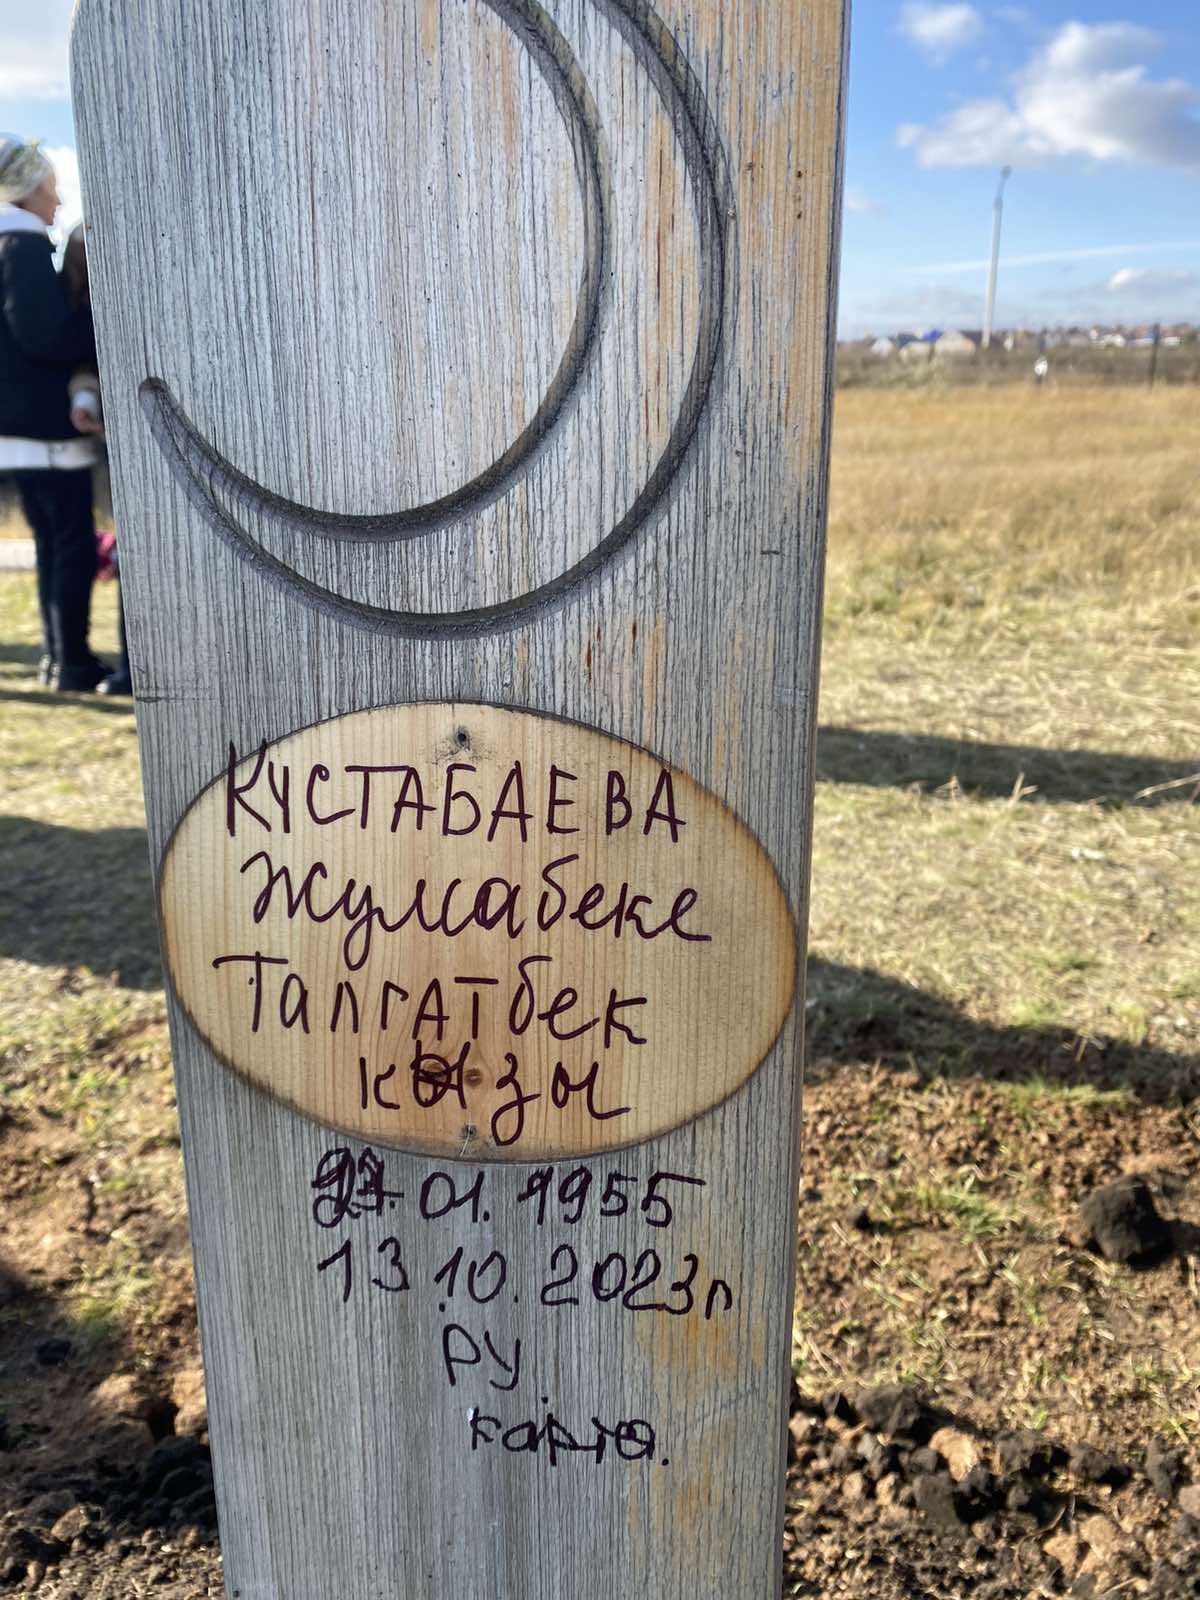 КУСТАБАЕВА
Жумабеке
Талгатбек
кызы
01.1955
13.10.2023г
РУ.